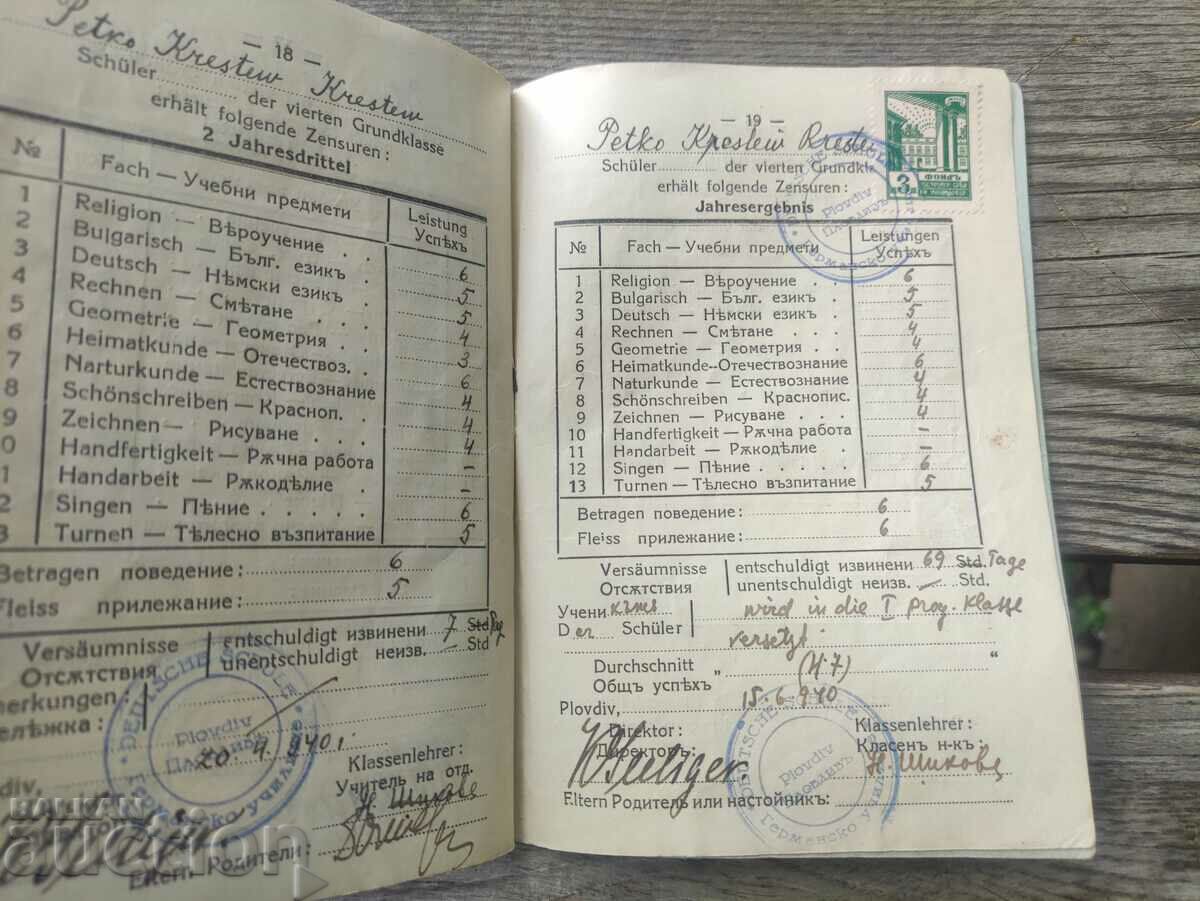 — 18 —
Petko Krestew Krestew
Schüler ......... der vierten Grundklasse
erhält folgende Zensuren :
2 Jahresdrittel
№ Fach — Учебни предмети Leistung Успѣхъ
1 Religion — Вѣроучение . . 6
2 Bulgarisch — Бълг. езикъ . 5
3 Deutsch — Нѣмски езикъ . 5
4 Rechnen — Смѣтане . . . 4
5 Geometrie — Геометрия . . 3
6 Heimatkunde — Отечествоз. 6
7 Narturkunde — Естествознание 4
8 Schönschreiben — Красноп. 4
9 Zeichnen — Рисуване . . . 4
0 Handfertigkeit — Рѫчна работа –
1 Handarbeit — Рѫкодѣлие . –
2 Singen — Пѣние . . . . . 6
3 Turnen — Тѣлесно възпитание 5
Betragen поведение : 6
Fleiss прилежание : 5
Versäumnisse entschuldigt извинени 7 Std Tag
Отсѫтствия unentschuldigt неизв. — Std
merkungen :
ележка :
DEUTSCHE SCHULE Plovdiv Пловдивъ Германско училище
div, 20. 4. 940 г.
Klassenlehrer :
Учитель на отд.
Н. Шикова
Eltern Родители :
— 19 —
Petko Krestew Kreste
Schüler ......... der vierten Grundkl
erhält folgende Zensuren :
Jahresergebnis
3 ФОНДЪ
DEUTSCHE SCHULE Plovdiv Пловдивъ Германско
№ Fach — Учебни предмети Leistungen Успѣхъ
1 Religion — Вѣроучение . . 6
2 Bulgarisch — Бълг. езикъ . 5
3 Deutsch — Нѣмски езикъ . 5
4 Rechnen — Смѣтане . . . 4
5 Geometrie — Геометрия . . 4
6 Heimatkunde-Отечествознание 6
7 Naturkunde — Естествознание 4
8 Schönschreiben — Краснопис. 4
9 Zeichnen — Рисуване . . . 4
10 Handfertigkeit — Рѫчна работа –
11 Handarbeit — Рѫкодѣлие . –
12 Singen — Пѣние . . . . . 6
13 Turnen — Тѣлесно възпитание 5
Betragen поведение : 6
Fleiss прилежание : 6
Versäumnisse entschuldigt извинени 69 Std. Tage
Отсѫтствия unentschuldigt неизв. — Std.
Учени къть wird in die I prog. Klasse
Der Schüler versetzt
Durchschnitt „ (4.7) “
Общъ успѣхъ
Plovdiv, 15. 6. 940
Direktor : Klassenlehrer :
Директоръ : Класенъ н-къ :
Н. Шикова
Eltern Родитель или настойникъ :
DEUTSCHE SCHULE Plovdiv Пловдивъ Германско училище
БАЛКАН
auction